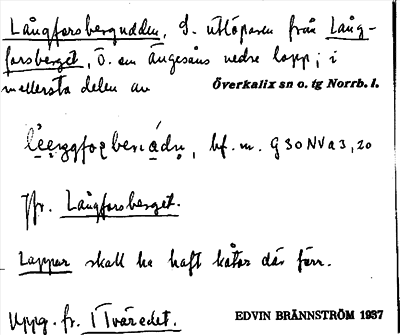 Långforsbergudden, S. utlöparen från Lång-
forsberget, Ö. om Ängesåns nedre lopp; i
mellersta delen av Överkalix sn o. tg Norrb. l.
bf. m. G30NVa3,20
Jfr. Långforsberget.
Lappar skall ha haft kåtor där förr.
Uppg. fr. 1 Tväredet. EDVIN BRÄNNSTRÖM 1937